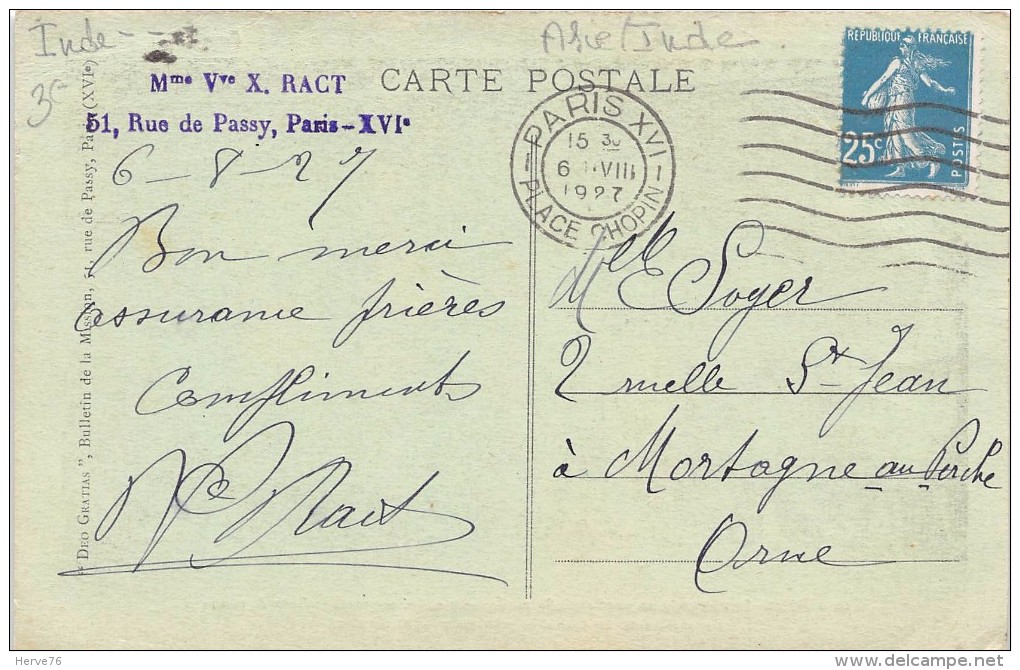 Inde
Asie Inde
3
Mme Vve X. RACT
51, Rue de Passy, Paris-XVIe
CARTE POSTALE
REPUBLIQUE FRANÇAISE
25c
POSTES
PARIS XVI
15 30
6 VIII
1927
PLACE CHOPIN
6-8-27
Bon merci
assurance prières
Compliments
Ract
Mlle Soyer
2 ruelle St Jean
à Mortagne au Perche
Orne
"DEO GRATIAS", Bulletin de la Mission, 51, rue de Passy, Paris (XVIe)
Herve76
delcampe.net